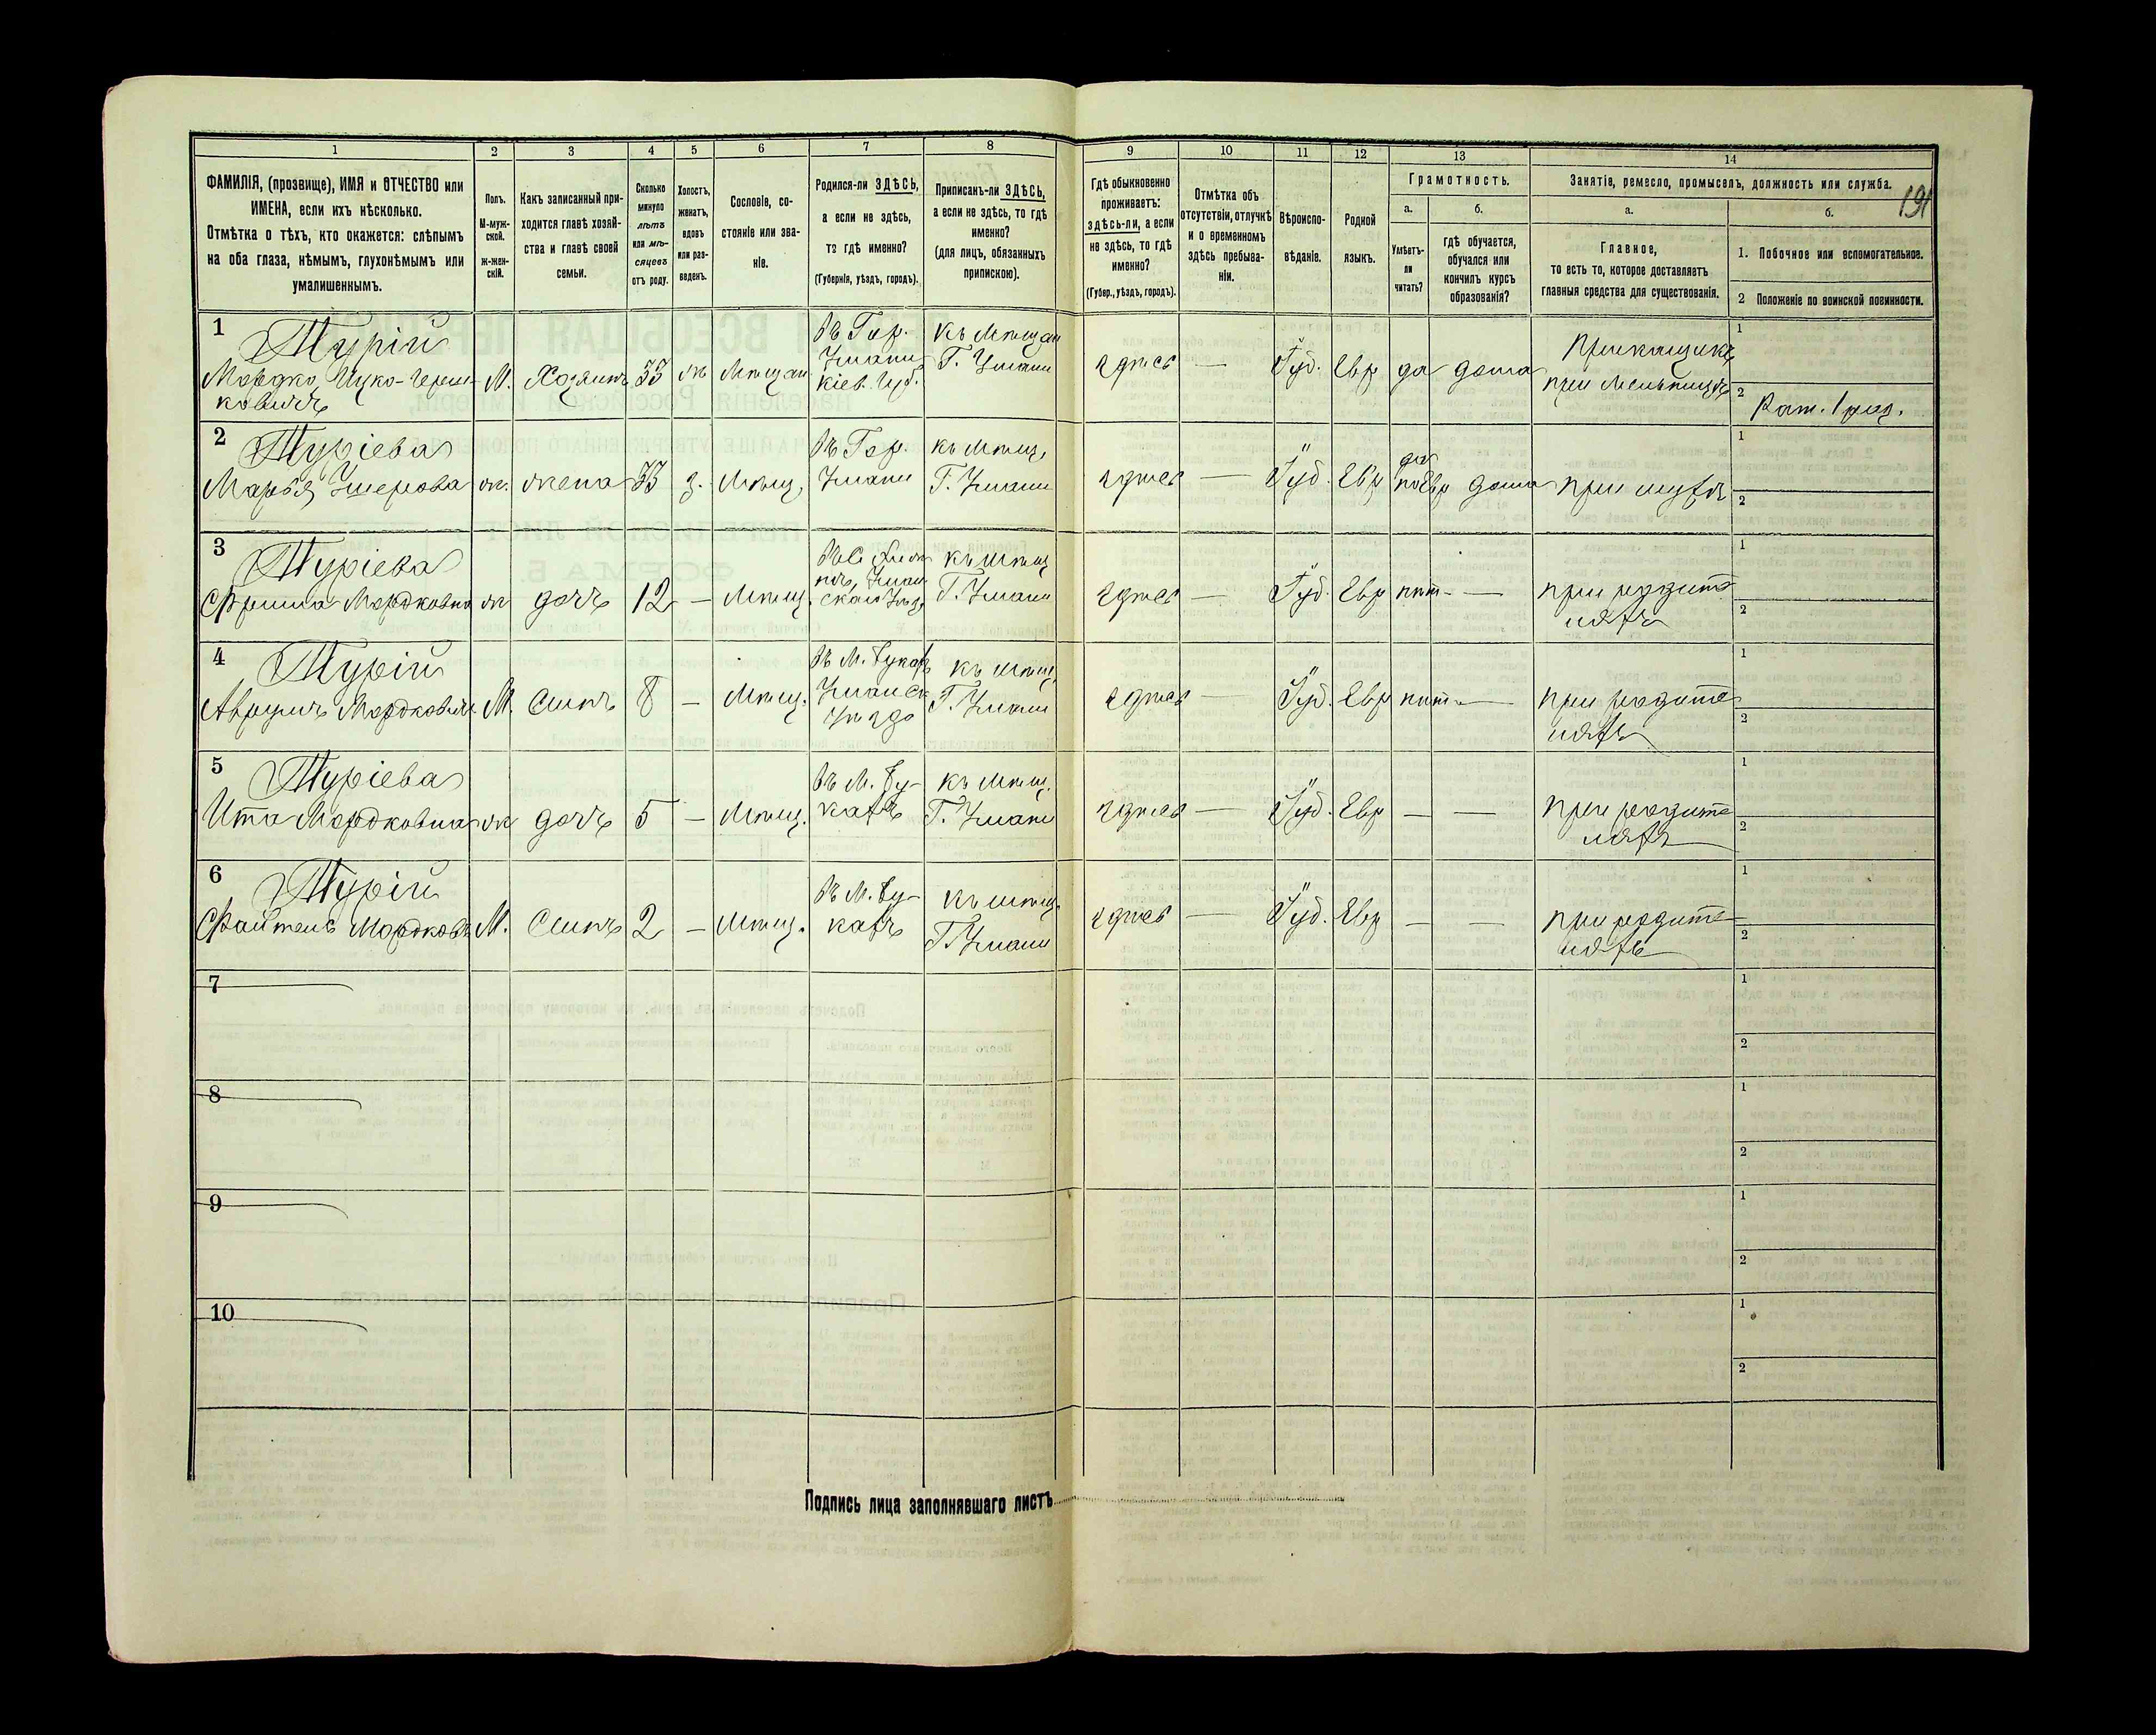 1 2 3 4 5 6 7 8 9 10 11 12 13 14
191
ФАМИЛІЯ, (прозвище), ИМЯ и ОТЧЕСТВО или
ИМЕНА, если ихъ нѣсколько.
Отмѣтка о тѣхъ, кто окажется: слѣпымъ
на оба глаза, нѣмымъ, глухонѣмымъ или
умалишеннымъ.
Полъ.
М-муж-
ской.
ж-жен-
скій.
Какъ записанный при-
ходится главѣ хозяй-
ства и главѣ своей
семьи.
Сколько
минуло
лѣтъ
или мѣ-
сяцевъ
отъ роду.
Холостъ,
женатъ,
вдовъ
или раз-
веденъ.
Сословіе, со-
стояніе или зва-
ніе.
Родился-ли ЗДѢСЬ,
а если не здѣсь,
то гдѣ именно?
(Губернія, уѣздъ, городъ).
Приписанъ-ли ЗДѢСЬ,
а если не здѣсь, то гдѣ
именно?
(для лицъ, обязанныхъ
припискою).
Гдѣ обыкновенно
проживаетъ:
здѣсь-ли, а если
не здѣсь, то гдѣ
именно?
(Губер., уѣздъ, городъ).
Отмѣтка объ
отсутствіи, отлучкѣ
и о временномъ
здѣсь пребыва-
ніи.
Вѣроиспо-
вѣданіе.
Родной
языкъ.
Грамотность.
а.
Умѣетъ-
ли
читать?
б.
гдѣ обучается,
обучался или
кончилъ курсъ
образованія?
Занятіе, ремесло, промыселъ, должность или служба.
а.
Главное,
то есть то, которое доставляетъ
главныя средства для существованія.
б.
1. Побочное или вспомогательное.
2 Положеніе по воинской повинности.
1
Турій
Мордко Ицко-Герш-
ковичъ
М.
Хозяинъ
33
жен
Мѣщан
Въ Гор.
Умани
Кіев. Губ.
Къ Мѣщан
Г. Умани
здѣсь
—
Іуд.
Евр
да
дома
Прикащикъ
при Мельницѣ
1
2
Рат. 1 раз.
2
Туріева
Марья Ушерова
ж.
жена
33
з.
Мѣщ.
Въ Гор.
Умани
Къ Мѣщ.
Г. Умани
здѣсь
—
Іуд.
Евр
да
по Евр
дома
при мужѣ
1
2
3
Туріева
Фрима Мордковна
ж
дочь
12
—
Мѣщ.
Къ Мѣщ
Г. Умани
здѣсь
—
Іуд.
Евр
нѣт
—
при родите
ляхъ
1
2
4
Турій
Аврумъ Мордковичъ
М.
Сынъ
8
—
Мѣщ.
Въ М. Букахъ
Уманск
Уѣзда
Къ Мѣщ.
Г. Умани
здѣсь
—
Іуд.
Евр
нѣт
—
при родите
ляхъ
1
2
5
Туріева
Ита Мордковна
ж
дочь
5
—
Мѣщ.
Въ М. Бу-
кахъ
Къ Мѣщ.
Г. Умани
здѣсь
—
Іуд.
Евр
—
—
при родите
ляхъ
1
2
6
Турій
Файтель Мордков
М.
Сынъ
2
—
Мѣщ.
Въ М. Бу-
кахъ
Къ Мѣщ.
Г. Умани
здѣсь
—
Іуд.
Евр
—
—
при родите
ляхъ
1
2
7
1
2
8
1
2
9
1
2
10
1
2
Подпись лица заполнявшаго листъ